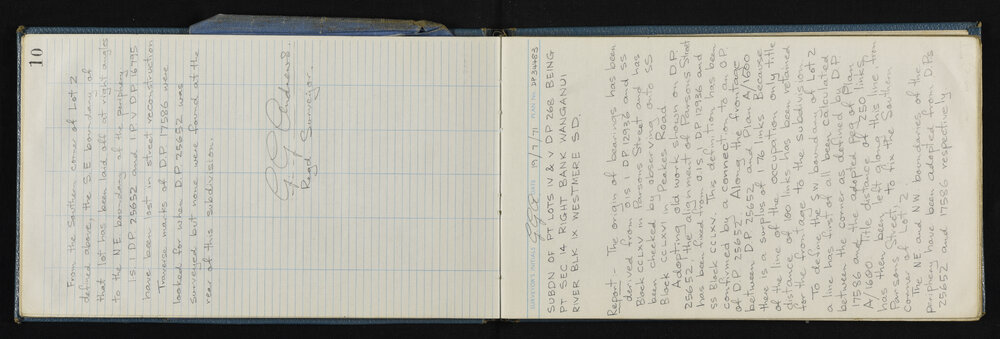 10
From the Southern corner of Lot 2
defined above, the S.E boundary of
that lot has been laid off at right angles
to the NE boundary of the periphery
IS I DP 25652 and IP V DP 16795
have been lost in street reconstruction
Traverse marks of D.P. 17586 were
looked for when D.P. 25652 was
surveyed but none were found at the
rear of this subdivision.
G G Andrews.
Regd Surveyor.
SURVEYOR'S INITIALS GGA DATE 19/7/71 PLAN No. DP 34483
SUBDN OF PT LOTS IV & V DP 268 BEING
PT SEC 14 RIGHT BANK WANGANUI
RIVER BLK IX WESTMERE S.D.
Report:- The origin of bearings has been
derived from OIS I DP 12936 and SS
Block CCLXV in Parsons Street and has
been checked by observing onto SS
Block CCLVI in Peakes Road
Adopting old work shown on D.P.
25652, the alignment of Parsons Street
has been fixed from OIS DP 12936 and
SS Block CCLXV. This definition has been
confirmed by a connection to an O.P.
of DP 25652. Along the frontage
between DP 25652 and Plan A/1600
there is a surplus of 1.76 links. Because
of the line of the occupation only title
distance of 100 links has been retained
for the frontage to the subdivision.
To define the SW boundary of Lot 2
a line has first of all been calculated
between the corner as defined by DP
17586 and the adopted peg of Plan
A/1600. Title distance of 250 links
has then been left along this line from
Parsons Street to fix the Southern
corner of Lot 2.
The NE and NW boundaries of the
periphery have been adopted from D.Ps
25652 and 17586 respectively